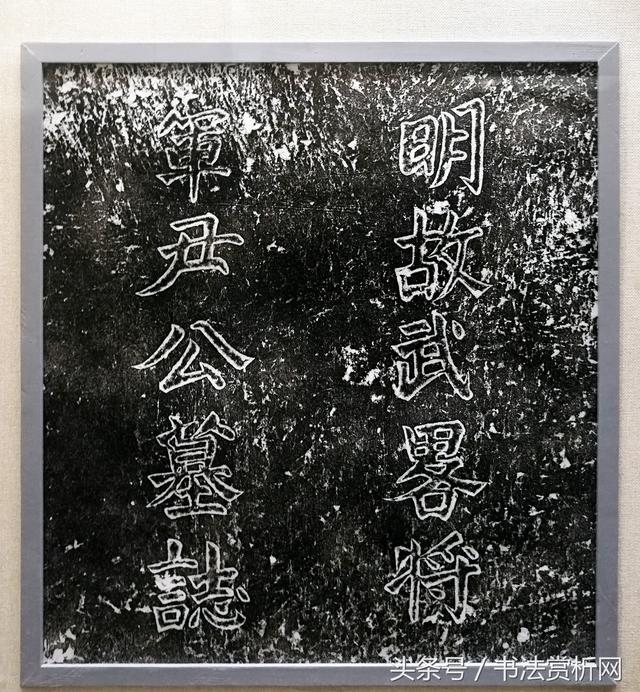 明故武畧将
軍尹公墓誌
头条号／书法赏析网